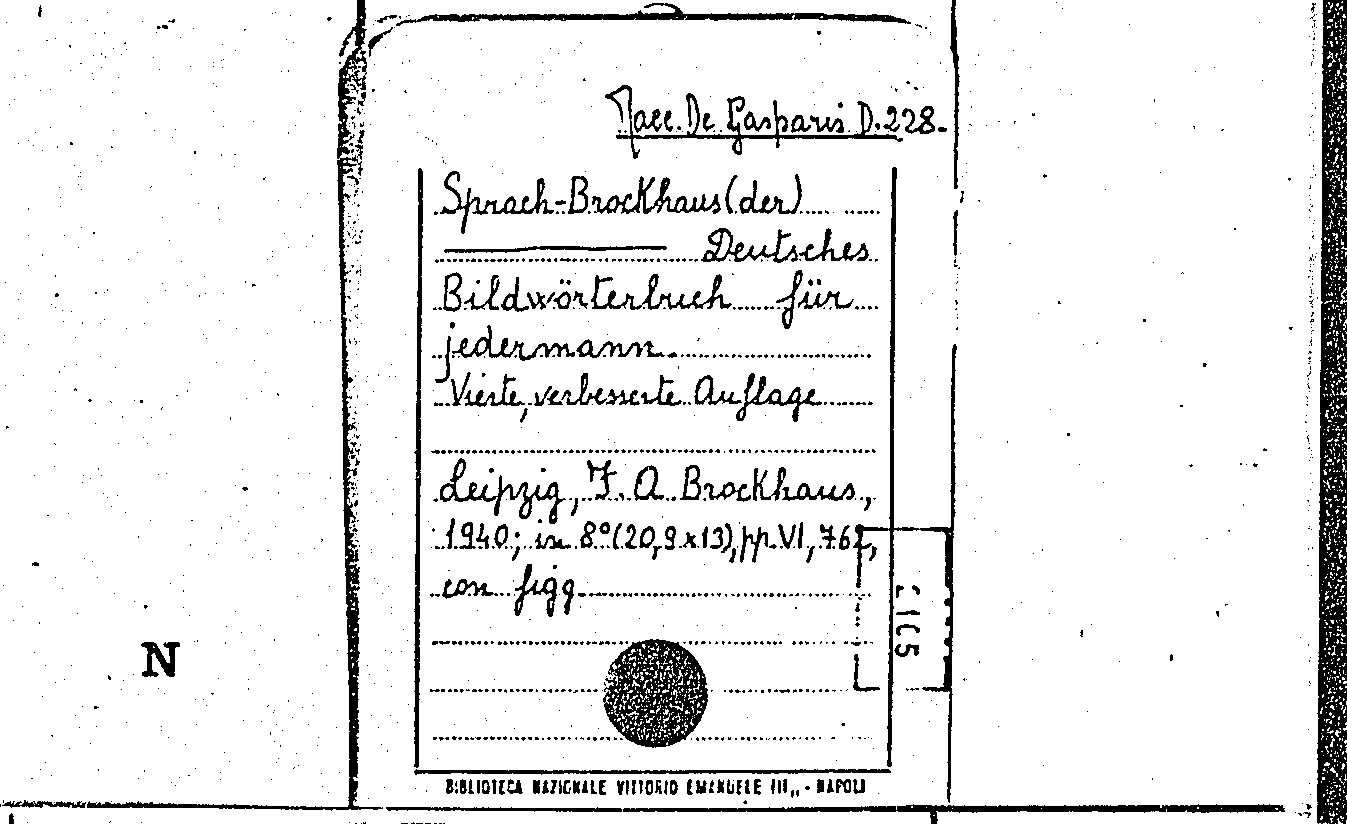 Racc. De Gasparis D. 228.
Sprach-Brockhaus (der)
Deutsches
Bildwörterbuch für
jedermann.
Vierte, verbesserte Auflage
Leipzig, F. A. Brockhaus,
1940; in 8° (20,9 x 13), pp. VI, 762,
con figg.
N
BIBLIOTECA NAZIONALE VITTORIO EMANUELE III,, - NAPOLI